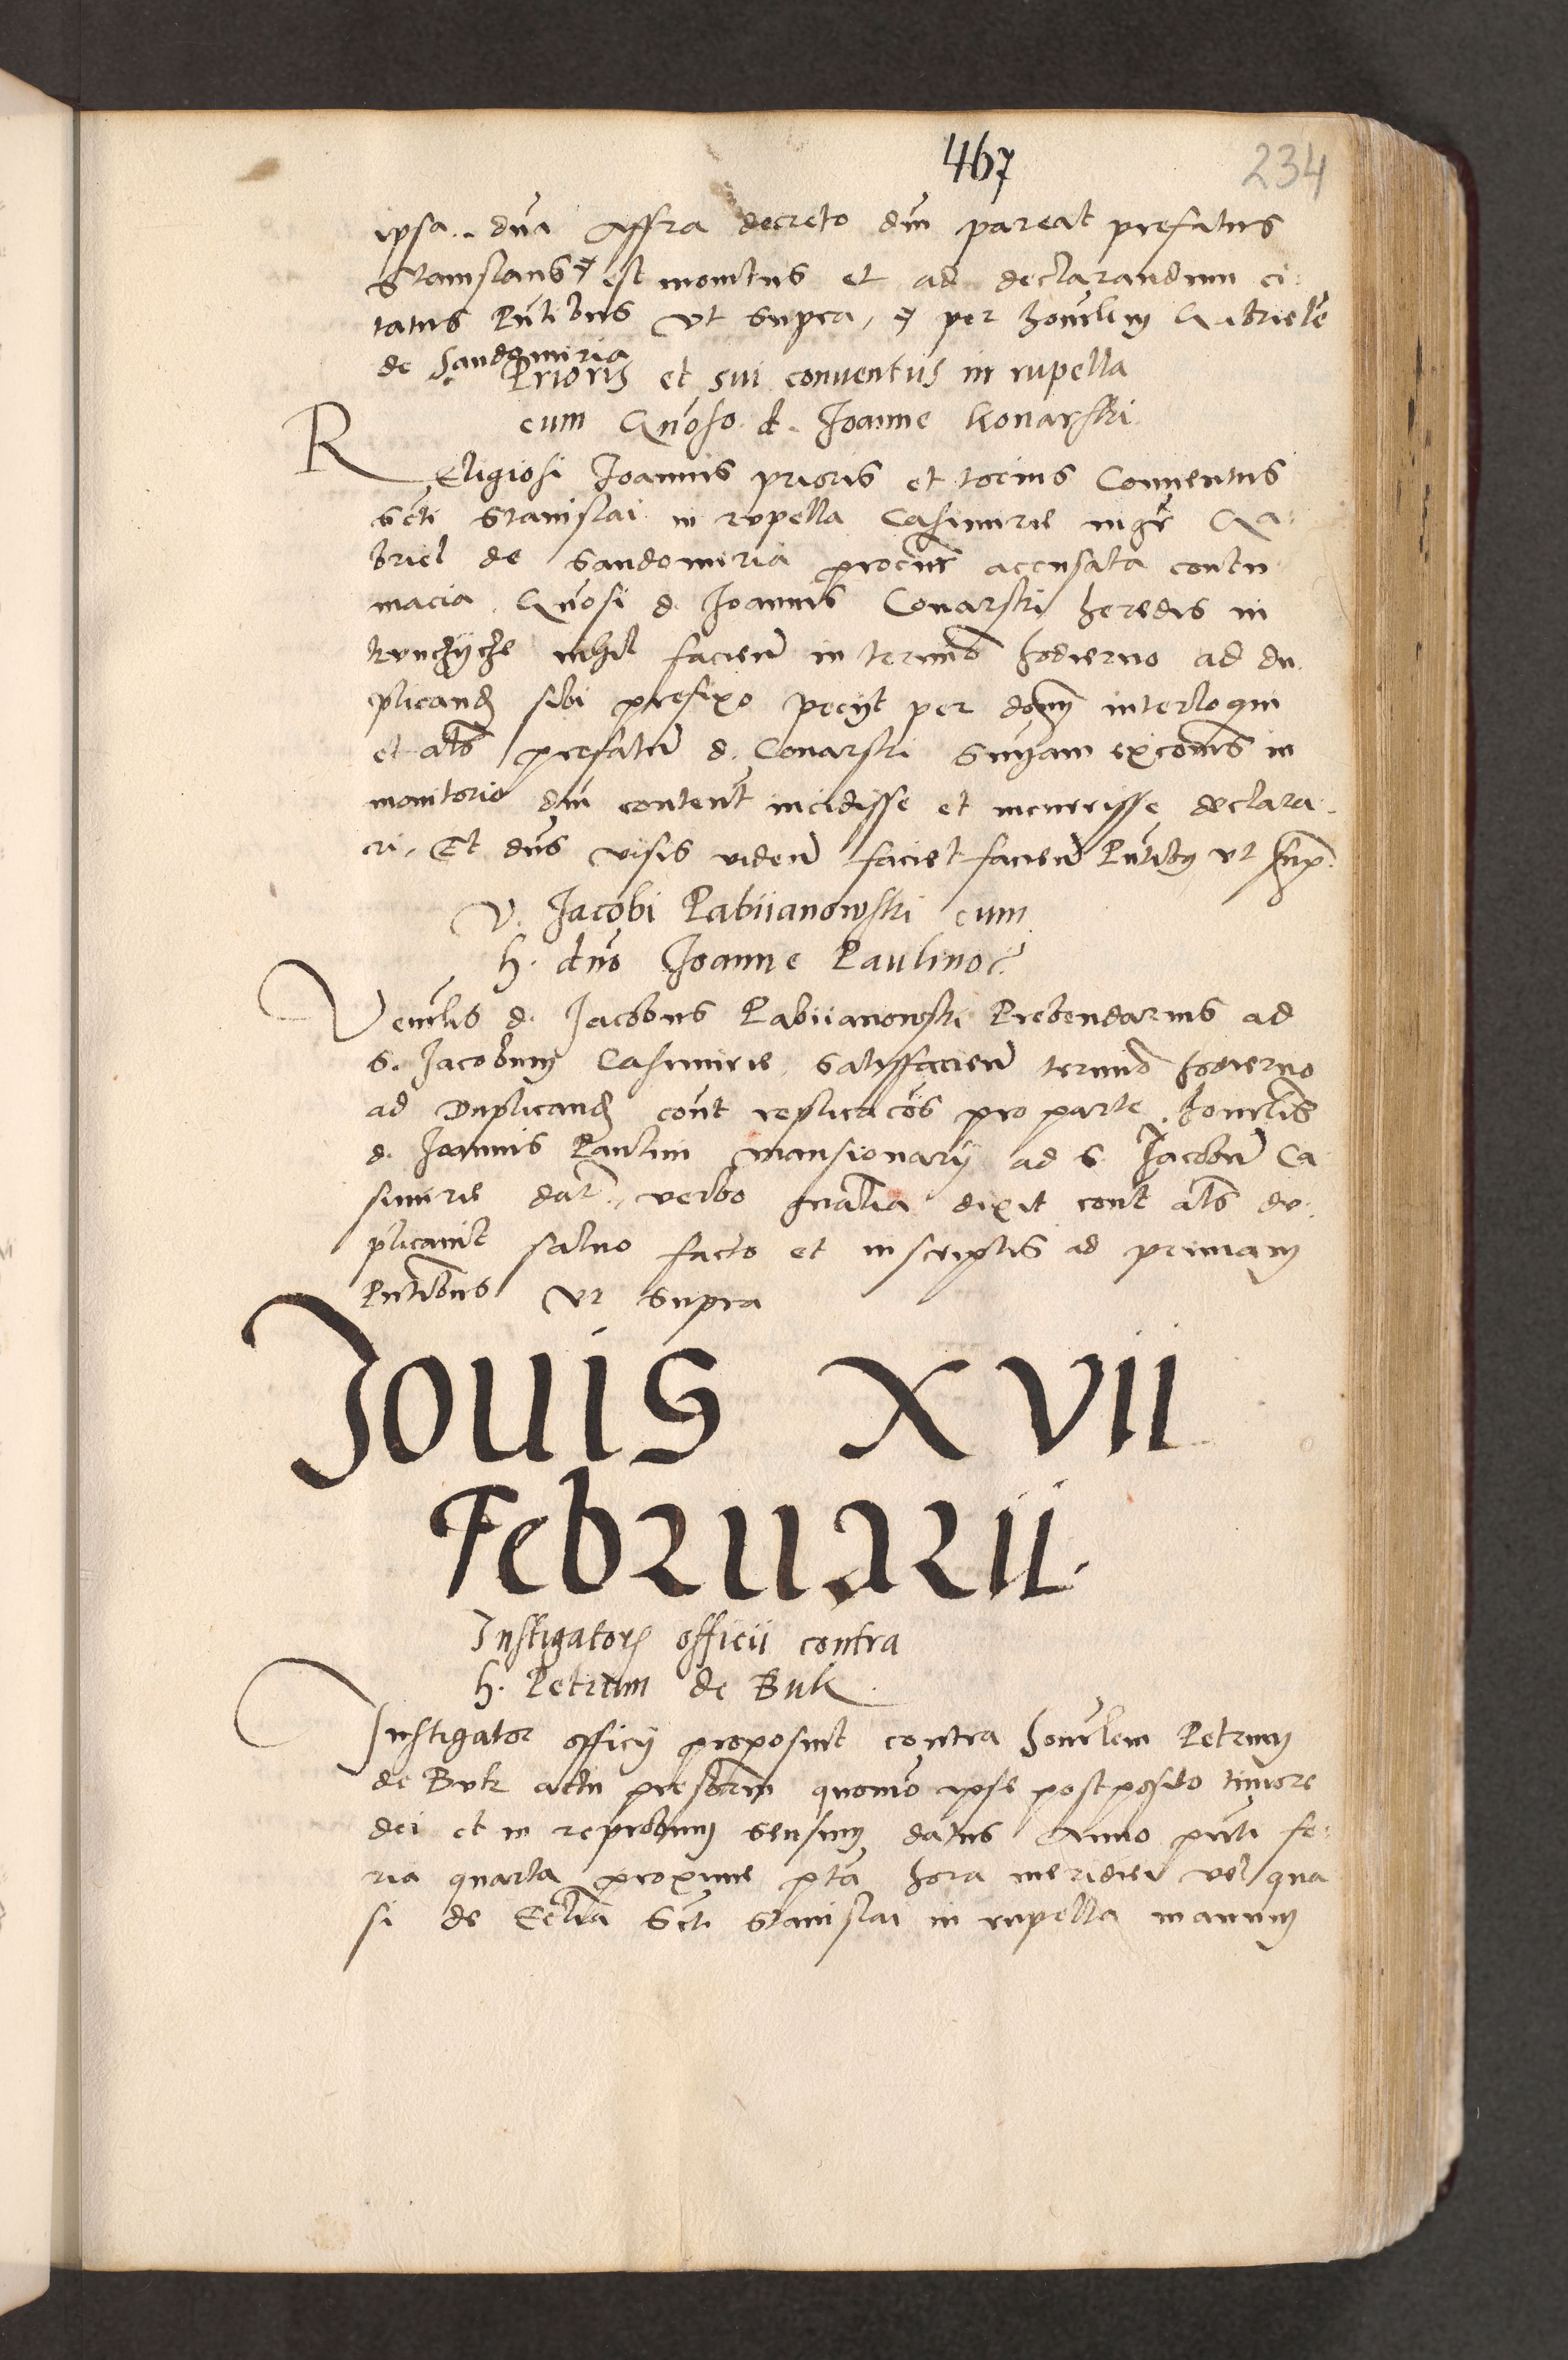 467
234
ipsa dna Affra decreto dni pareat prefatus
Stanislaus est monitus et ad declarandum ci-
tatus Pntibus vt supra, per honrlem Gabriele
de Sandomiria
Prioris et sui conventus in rupella
cum Gnoso d. Joanne Konarski
Religiosi Joannis prioris et tocius Conuentus
Scti Stanislai in rupella Casimirie mgr Ga-
briel de Sandomiria procur accusata contu-
macia Gnosi d. Joannis Conarski heredis in
nihil facien in termino hodierno ad du-
plicand sibi prefixo peciit per dnm interloqui
et als prefatu d. Conarski sniam excoīs in
monitorio dni content incidisse et incurrisse declara-
ri. Et dns visis viden faciet facien Pntibus vt supra
V. Jacobi Pabiianowski cum
h. dno Joanne Paulino
Venrlis d. Jacobus Pabiianowski Prebendarius ad
S. Jacobum Casimirie satisfacien termino hodierno
ad Duplicand cont replicacōs pro parte honrlis
d. Joannis Paulini mansionarij ad S. Jacobu Ca
simirie dat. verbo gnalia dixit cont als du-
plicauit saluo facto et in scriptis ad primam
Pntibus vt supra
Jouis XVII
Februarii.
Instigatoris officii contra
h. Petrum de Buk
Instigator officij proposuit contra honrlem Petrum
de Buk actu presbrm quomo ipse postposito timore
dei et in reprobum sensum datus Anno pnti fe-
ria quarta proxime pta hora meridiei vel qua
si de Ecclia Scti Stanislai in rupella manum